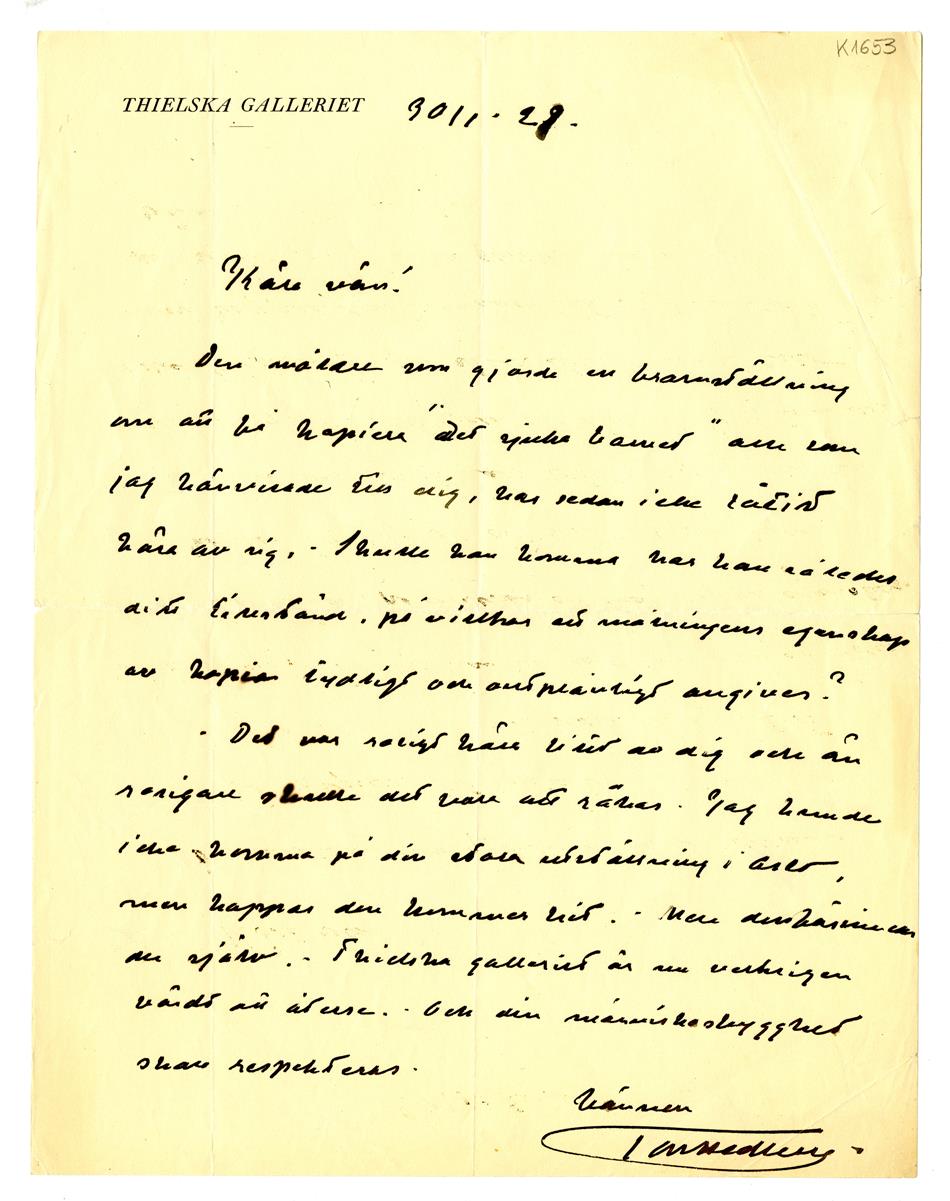 K1653
THIELSKA GALLERIET 30/1 - 28.
Käre vän!
Den målare som gjorde en framställning
om att få kopiera "Det sjuka barnet" och som
jag hänvisade till dig, har sedan icke låtit
höra av sig. - Skulle han komma har han således
ditt tillstånd, på villkor att målningens egenskap
av kopia tydligt och outplånligt angives?
- Det var roligt höra litet av dig och än
roligare skulle det vara att råkas. Jag kunde
icke komma på din stora utställning i Oslo,
men hoppas den kommer hit. -
du själv. - Thielska galleriet är nu verkligen
värdt att återse. - Och din människoskygghet
skall respekteras.
Vännen
Tor Hedberg